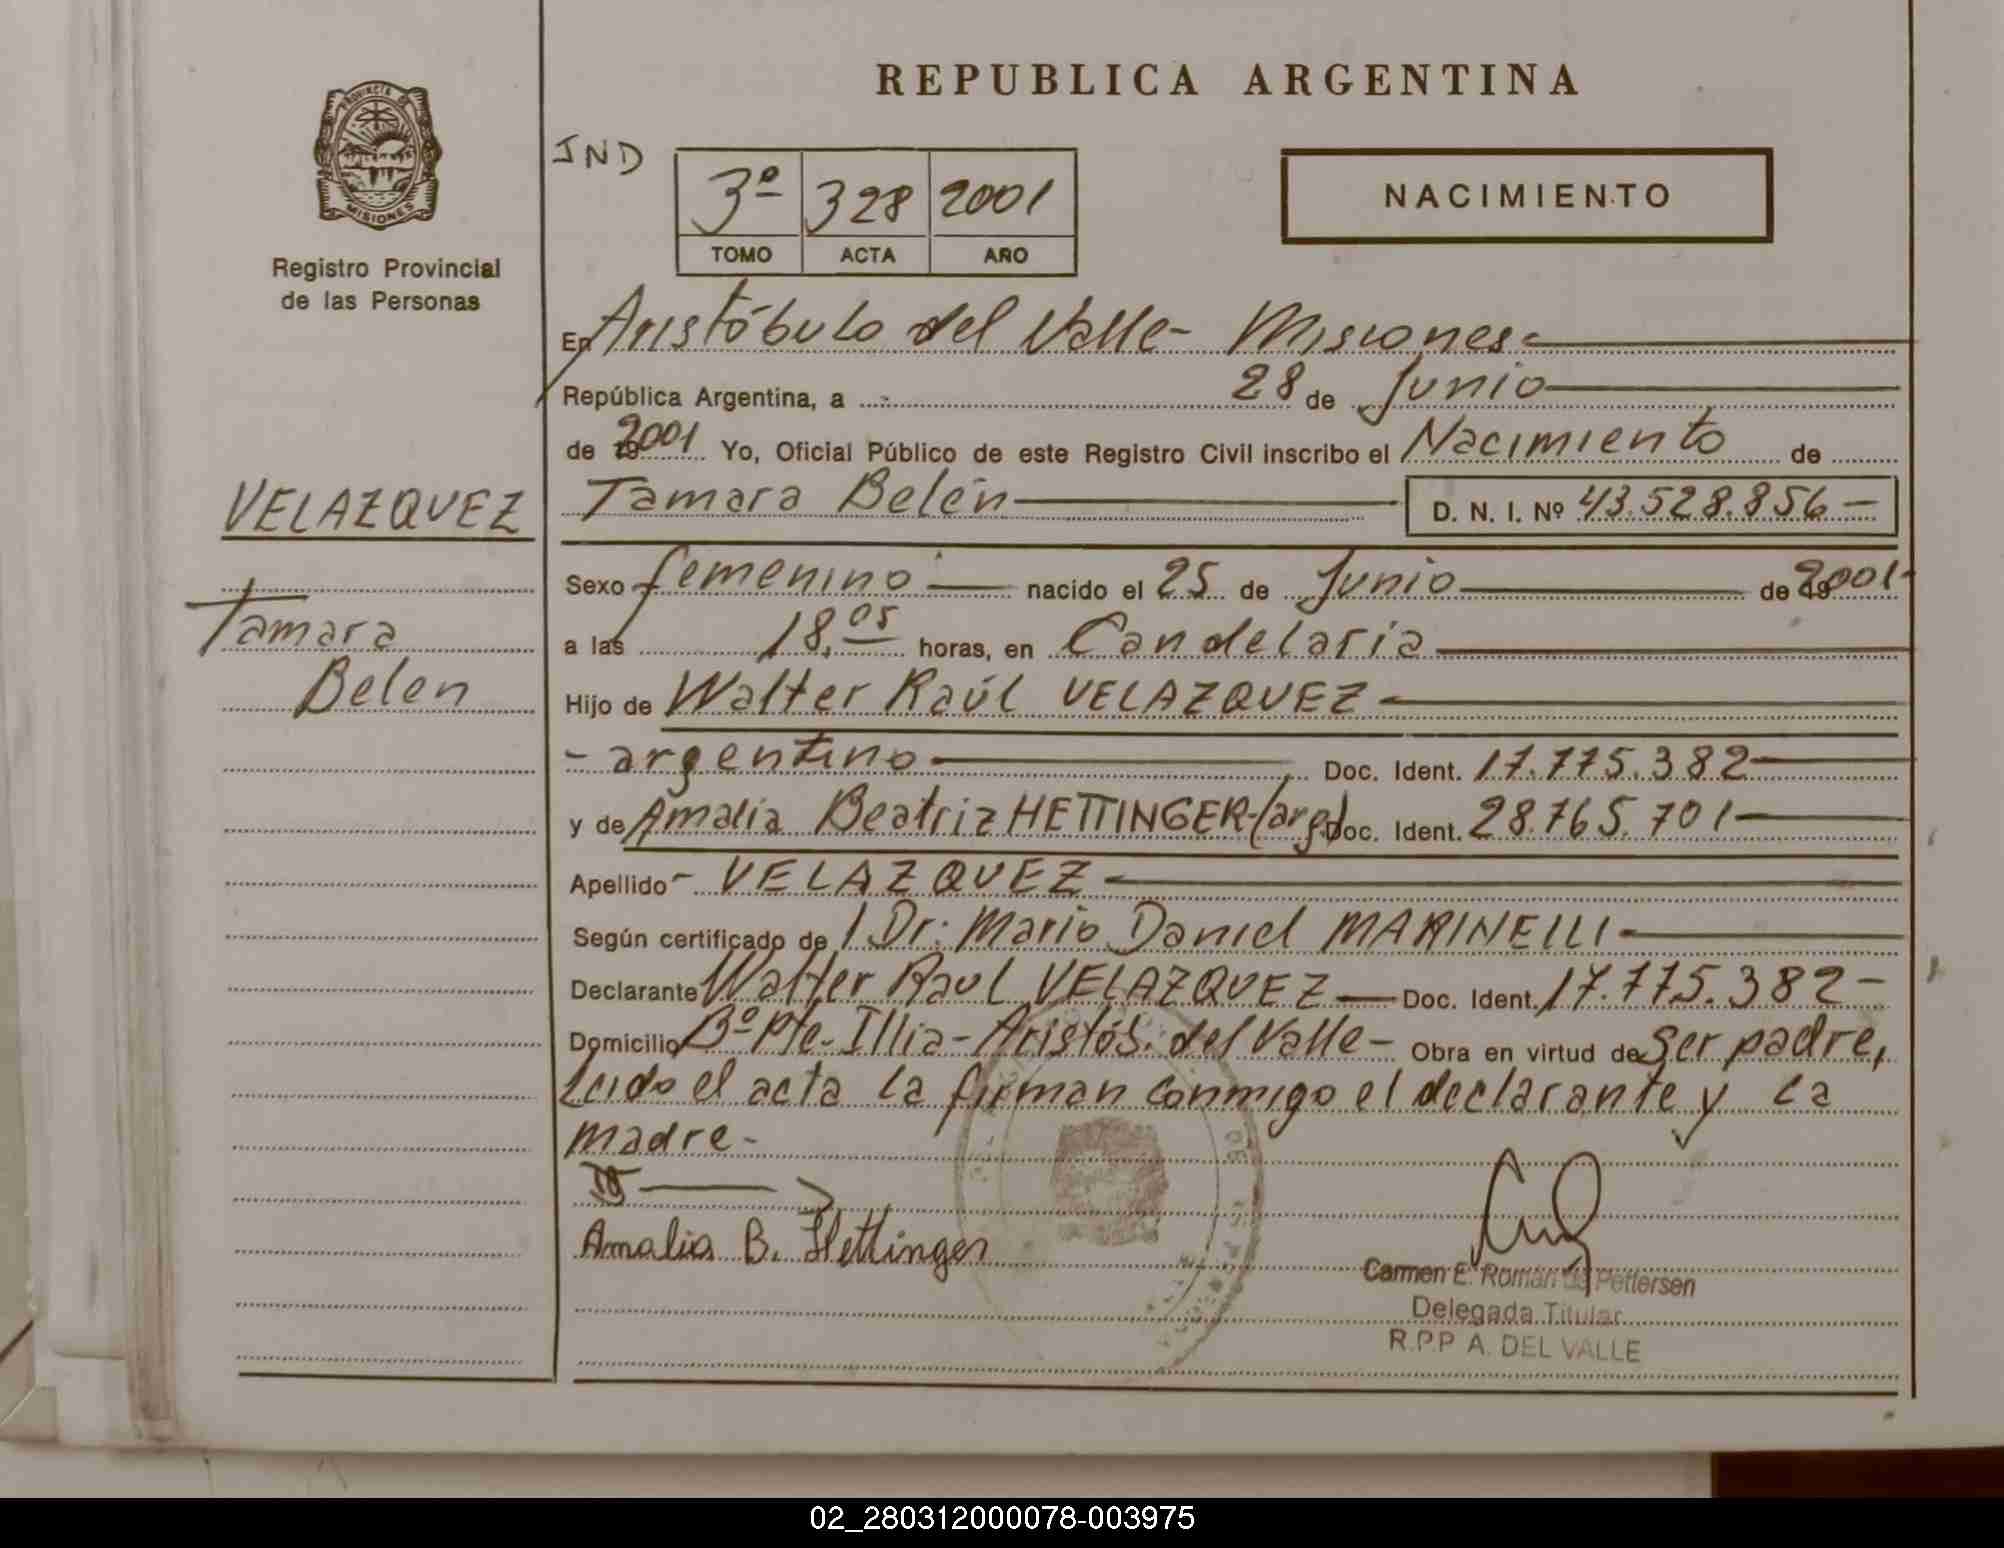 REPUBLICA ARGENTINA
PROVINCIA DE
MISIONES
Registro Provincial
de las Personas
IND
3º 328 2001
TOMO ACTA AÑO
NACIMIENTO
En Aristóbulo del Valle - Misiones -
República Argentina, a 28 de Junio
de 2001 Yo, Oficial Público de este Registro Civil inscribo el Nacimiento de
VELAZQUEZ
Tamara Belén D. N. I. Nº 43.528.856 -
Tamara
Belen
Sexo femenino nacido el 25 de Junio de 2001
a las 18,05 horas, en Candelaria
Hijo de Walter Raúl VELAZQUEZ
- argentino Doc. Ident. 17.775.382
y de Amalia Beatriz HETTINGER - (arg.) Doc. Ident. 28.765.701
Apellido - VELAZQUEZ
Según certificado de / Dr: Mario Daniel MARINELLI
Declarante Walter Raul VELAZQUEZ Doc. Ident. 17.775.382 -
Domicilio Bº Pte. Illia - Aristób. del Valle - Obra en virtud de ser padre,
Leido el acta la firman conmigo el declarante y la
madre -
Amalia B. Hettinger
Carmen E. Román de Pettersen
Delegada Titular
R.P.P A. DEL VALLE
02_280312000078-003975